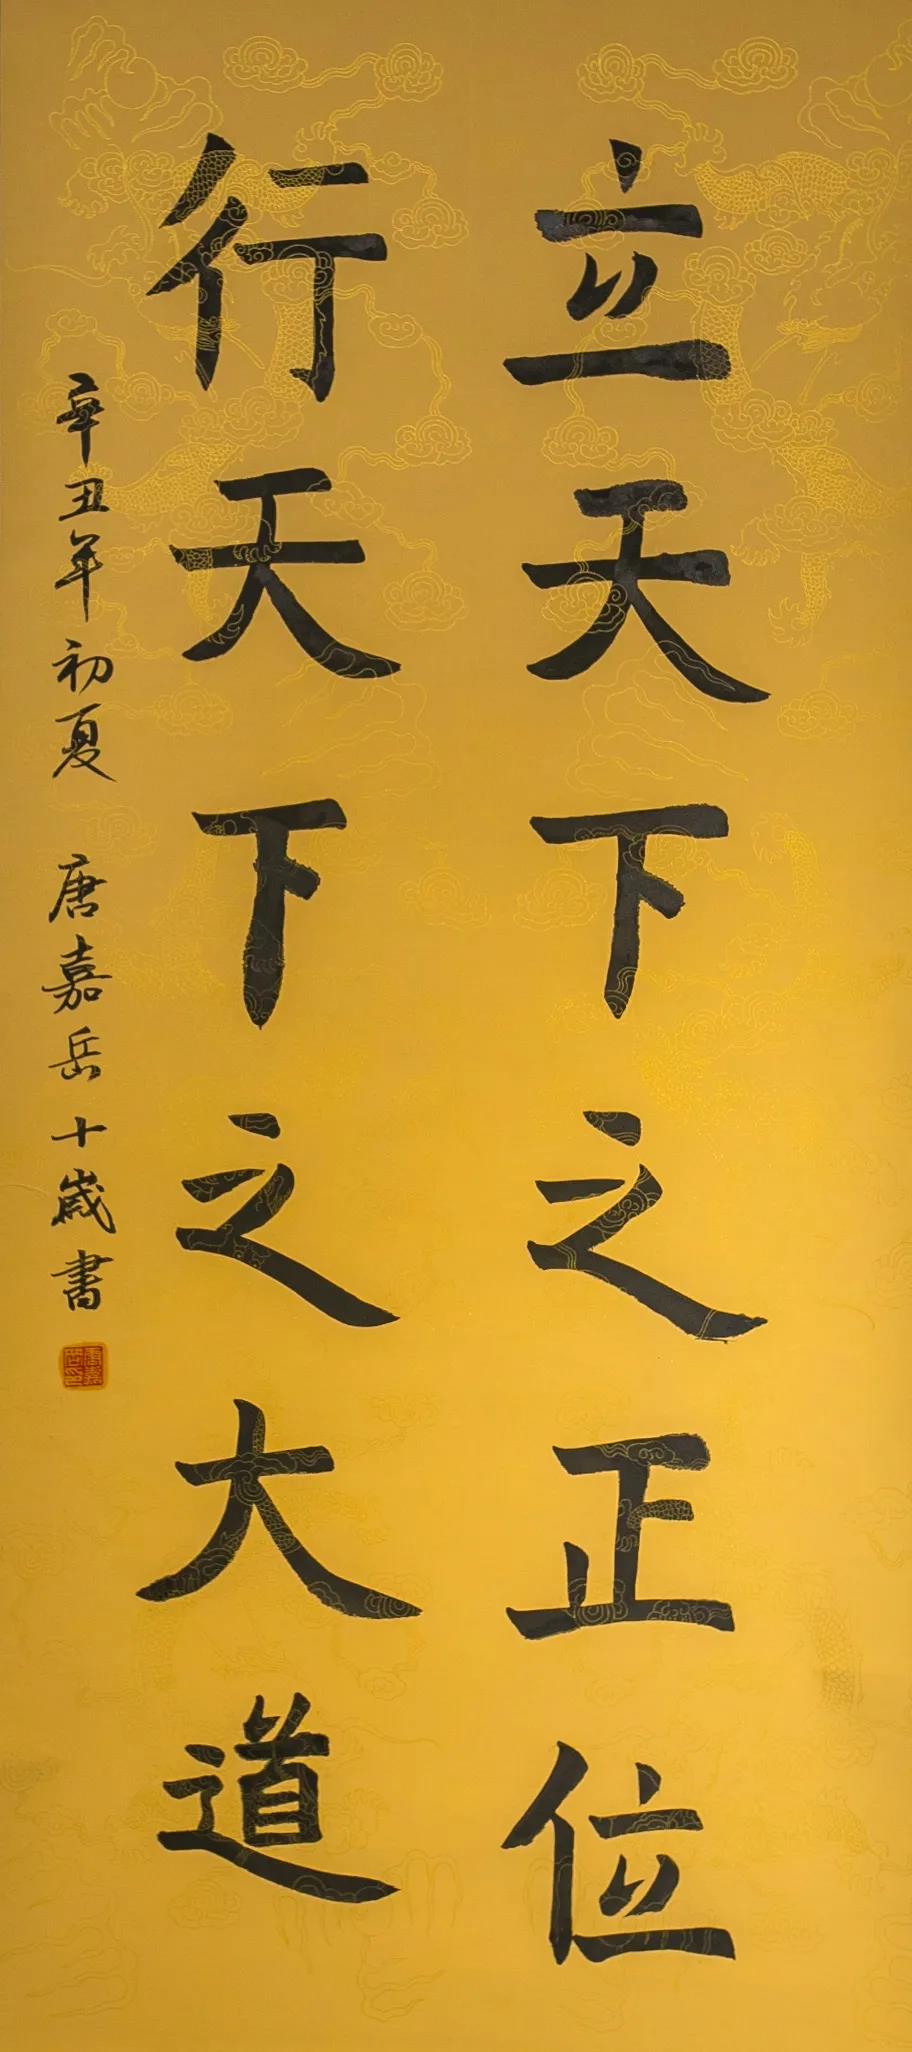 立天下之正位
行天下之大道
辛丑年初夏 唐嘉岳十歲書